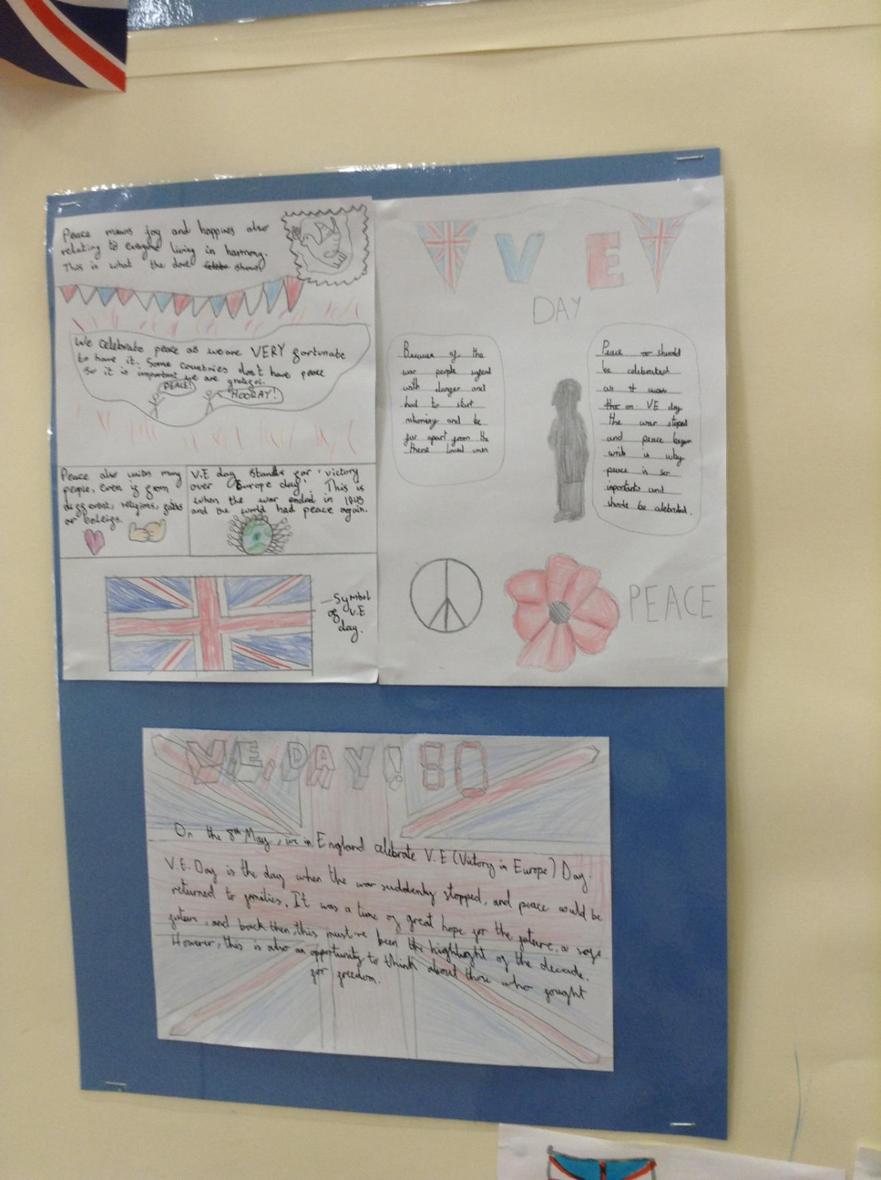 Peace means joy and happines also
relating to everyone living in harmony.
This is what the dove shows
We celebrate peace as we are VERY fortunate
to have it. Some countries don't have peace
so it is important we are grateful.
PEACE!
HOORAY!
Peace also unites many
people, even if from
different, religions,
or beleifs.
V.E day stands for 'victory
over Europe day'. This is
when the war ended in 1945
and the world had peace again.
Symbol
of V.E
day.
V E
DAY
Because of the
war people
with danger and
had to start
rationing and be
far apart from the
there loved ones
Peace should
be celebrated
as it was
on VE day
the war stoped
and peace began
wich is why
peace is so
importants and
should be celebrated.
PEACE
V.E. DAY! 80
On the 8th May, we in England celebrate V.E (Victory in Europe) Day.
V.E. Day is the day when the war suddenly stopped, and peace would be
returned to families. It was a time of great hope for the future, a safe
future, and back then, this must've been the highlight of the decade.
However, this is also an opportunity to think about those who fought
for freedom.